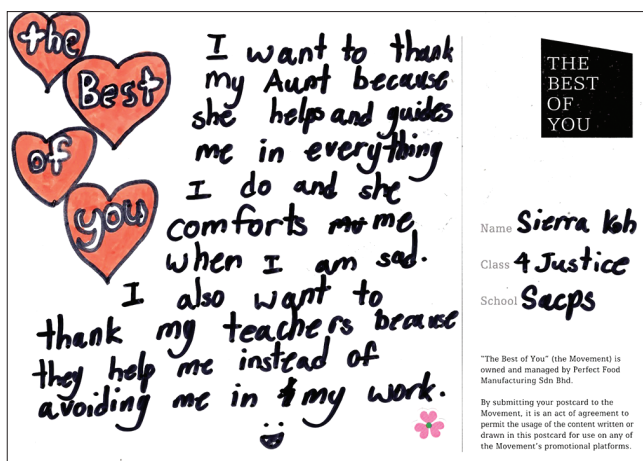 the
Best
of
you
I want to thank
my Aunt because
she helps and guides
me in everything
I do and she
comforts me
when I am sad.
I also want to
thank my teachers because
they help me instead of
avoiding me in my work.
THE
BEST
OF
YOU
Name Sierra Koh
Class 4 Justice
School Sacps
"The Best of You" (the Movement) is
owned and managed by Perfect Food
Manufacturing Sdn Bhd.
By submitting your postcard to the
Movement, it is an act of agreement to
permit the usage of the content written or
drawn in this postcard for use on any of
the Movement's promotional platforms.